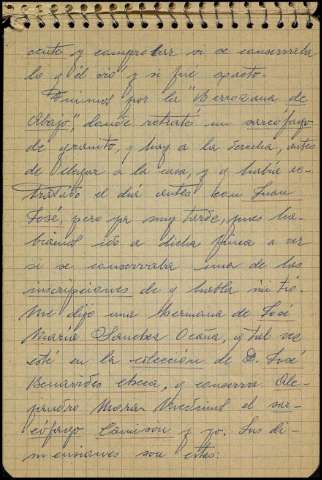 cente y comprobar si se conservaba
lo q él vió y si fué exacto.
Fuimos por la "Berrozana de
Abajo", donde retraté un sarcófago
de granito, q hay a la derecha, antes
de llegar a la casa, y q había re-
tratado el día antes con Juan
José, pero ya muy tarde, pues ha-
biamos ido a dicha finca a ver
si se conservaba una de las
inscripciones de q habla mi tío.
Me dijo una hermana de José
María Sánchez Ocaña, q tal vez
esté en la colección de D. José
Benavides Checa, q conserva Ale-
jandro
el sar-
cófago y yo. Sus di-
mensiones son estas: